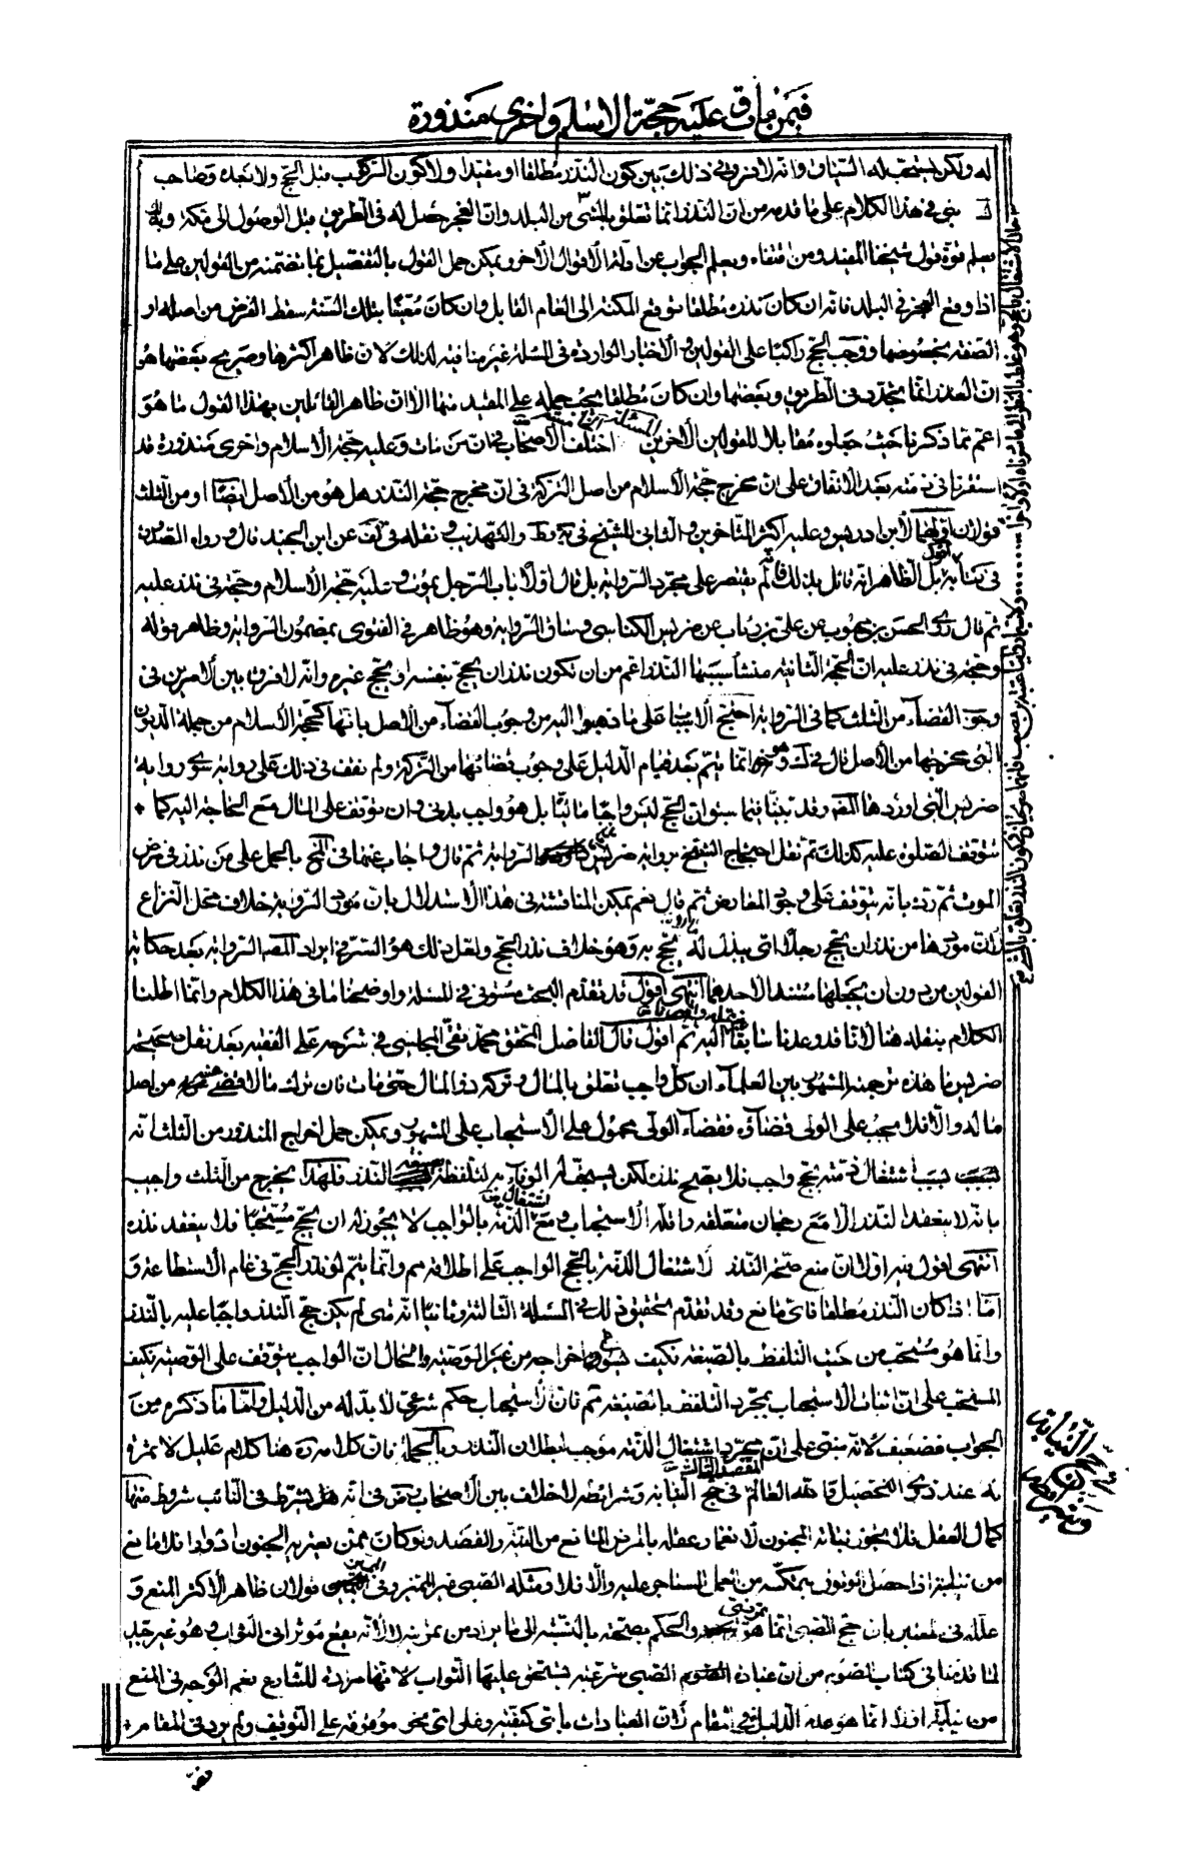 فيمن مات وعليه حجة الاسلم واخرى منذورة
له ولكن يستحب له السياق وانه لا فرق في ذلك بين كون النذر مطلقا او مقيدا ولا كون الركوب مثل الحج ولا بعده وصاحب
بنى في هذا الكلام على ما قدمه من ان النذر انما تعلق بالمشي من البلد وان العجز حصل له في الطريق مثل الوصول الى مكة وبه
يعلم قوة قول شيخنا المفيد ومن اقتفاه ويعلم الجواب عن ادلة الاقوال الاخر ويمكن حمل القول بالتفصيل بما تضمنه من القولين على ما
اذا وقع العجز في البلد فانه ان كان نذره مطلقا توقع المكنة الى العام القابل وان كان معينا بتلك السنة سقط الفرض من اصله او
الصفة بخصوصها ووجب الحج راكبا على القولين والاخبار الواردة في المسئلة غير منافية لذلك لان ظاهر اكثرها وصريح بعضها هو
ان العذر انما تجدد في الطريق وبعضها وان كان مطلقا يجب حمله على المقيد منها الا ان ظاهر القائلين بهذا القول ما هو
اعم مما ذكرنا حيث جعلوه مقابلا للقولين الاخرين اختلف الاصحاب فيمن مات وعليه حجة الاسلام واخرى منذورة قد
استقرتا في ذمته بعد الاتفاق على ان مخرج حجة الاسلام من اصل التركة في ان مخرج حجة النذر هل هو من الاصل ايضا او من الثلث
قولان اولهما لابن ادريس وعليه اكثر المتاخرين والثاني للشيخ في ية وط والتهذيب ونقله في لف عن ابن الجنيد قال ورواه الصدوق
في كتابه اقول بل الظاهر انه قائل بذلك فانه لم يقتصر على مجرد الرواية بل قال اولا باب الرجل يموت وعليه حجة الاسلام وحجة في نذر عليه
ثم قال روى الحسن بن محبوب عن علي بن رئاب عن ضريس الكناسي وساق الرواية وهو ظاهر في الفتوى بمضمون الرواية وظاهر قوله
وحجة في نذر عليه ان الحجة الثانية منشأ سببها النذر اعم من ان تكون نذر ان يحج بنفسه او يحج غيره وانه لا فرق بين الامرين في
وجوب القضاء من الثلث كما في الرواية احتج الاولون على ما ذهبوا اليه من وجوب القضاء من الاصل بانها كحجة الاسلام من جملة الديون
التي مخرجها من الاصل قال في ك وهو انما يتم بعد قيام الدليل على وجوب قضائها من التركة ولم نقف في ذلك على رواية سوى رواية
ضريس التي اوردها المصنف وقد بينا فيما سبق ان الحج ليس واجبا ماليا بل هو واجب بدني وان توقف على المال مع الحاجة اليه كما
تتوقف الصلوة عليه كذلك ثم نقل احتجاج الشيخ برواية ضريس الرواية ثم قال واجاب عنها في لف بالحمل على من نذر في مرض
الموت ثم رده بانه يتوقف على وجود المعارض ثم قال نعم يمكن المناقشة في هذا الاستدلال بان مورد الرواية خلاف محل النزاع
لان موردها من نذر ان يحج رجلا اي يبذل له ما يحج به وهو خلاف نذر الحج ولعل ذلك هو السر في ايراد المصنف الرواية بعد حكاية
القولين من دون ان يجعلها مستندا لاحدهما انتهى اقول قد تقدم البحث مستوفى في المسئلة واوضحنا ما في هذا الكلام وانما اطلنا
الكلام بنقله هنا لانا قد وعدنا سابقا اليه ثم اقول قال الفاضل المحقق محمد تقي المجلسي في شرحه على الفقيه بعد نقل صحيحة
ضريس ما هذه ترجمته المشهور بين العلماء ان كل واجب تعلق بالمال وتركه ذو المال حتى مات فان ترك مالا من اصل
ماله والا فلا يجب على الولي قضاؤه فقضاء الولي محمول على الاستحباب على المشهور ويمكن حمل اخراج المنذور من الثلث انه
بسبب اشتغال ذمته بحج واجب فلا يصح نذره لكن يستحب له الوفاء به لتلفظه النذر فلهذا يخرج من الثلث واجيب
بانه لا ينعقد النذر الا مع رجحان متعلقه واقله الاستحباب ومع اشتغال الذمة بالواجب لا يجوز له ان يحج مستحبا فلا ينعقد نذره
انتهى اقول فيه اولا ان منع صحة النذر لاشتغال الذمة بالحج الواجب على اطلاقه مم وانما يتم لو نذر الحج في عام الاستطاعة و
اما اذا كان النذر مطلقا فاي مانع وقد تقدم تحقيق ذلك في المسئلة الثالثة وثانيا انه متى لم يكن حج النذر واجبا عليه بالنذر
وانما هو مستحب من حيث التلفظ بالصيغة فكيف يسوغ اخراجه من غير الوصية والحال ان الواجب يتوقف على الوصية فكيف
المستحب على ان اثبات الاستحباب بمجرد التلفظ بالصيغة ثم فان الاستحباب حكم شرعي لا بد له من الدليل واما ما ذكره من
الجواب فضعيف لانه مبني على ان مجرد اشتغال الذمة موجب لبطلان النذر وبالجملة فان كلامه ره هنا كلام عليل لا ثمرة
له عند ذوي التحصيل المقصد الثالث في حج النيابة وشرائطه لا خلاف بين الاصحاب رض في انه يشترط في النائب شروط منها
كمال العقل فلا يجوز نيابة المجنون لانغمار عقله بالمرض المانع من النية والقصد ولو كان ممن يعتريه الجنون ادوارا فلا مانع
من نيابته اذا حصل الوثوق بتمكنه من العمل المستاجر عليه والا فلا ومثله الصبي غير المميز وفي المميز قولان ظاهر الاكثر المنع و
علله في المعتبر بان حج الصبي انما هو تمريني والحكم بصحته بالنسبة الى ما يراد من تمرينه لا لانه يقع مؤثرا في الثواب وهو غير جيد
لما قدمنا في كتاب الصوم من ان عبادة الصبي شرعية يستحق عليها الثواب لانها مرادة للشارع نعم الوجه في المنع
من نيابته اذن انما هو عدم الدليل في المقام لان العبادات مبنية كيفية وعلى اي نحو موقوفة على التوقيف ولم يرد في المقام
في النيابة
وشرائطها